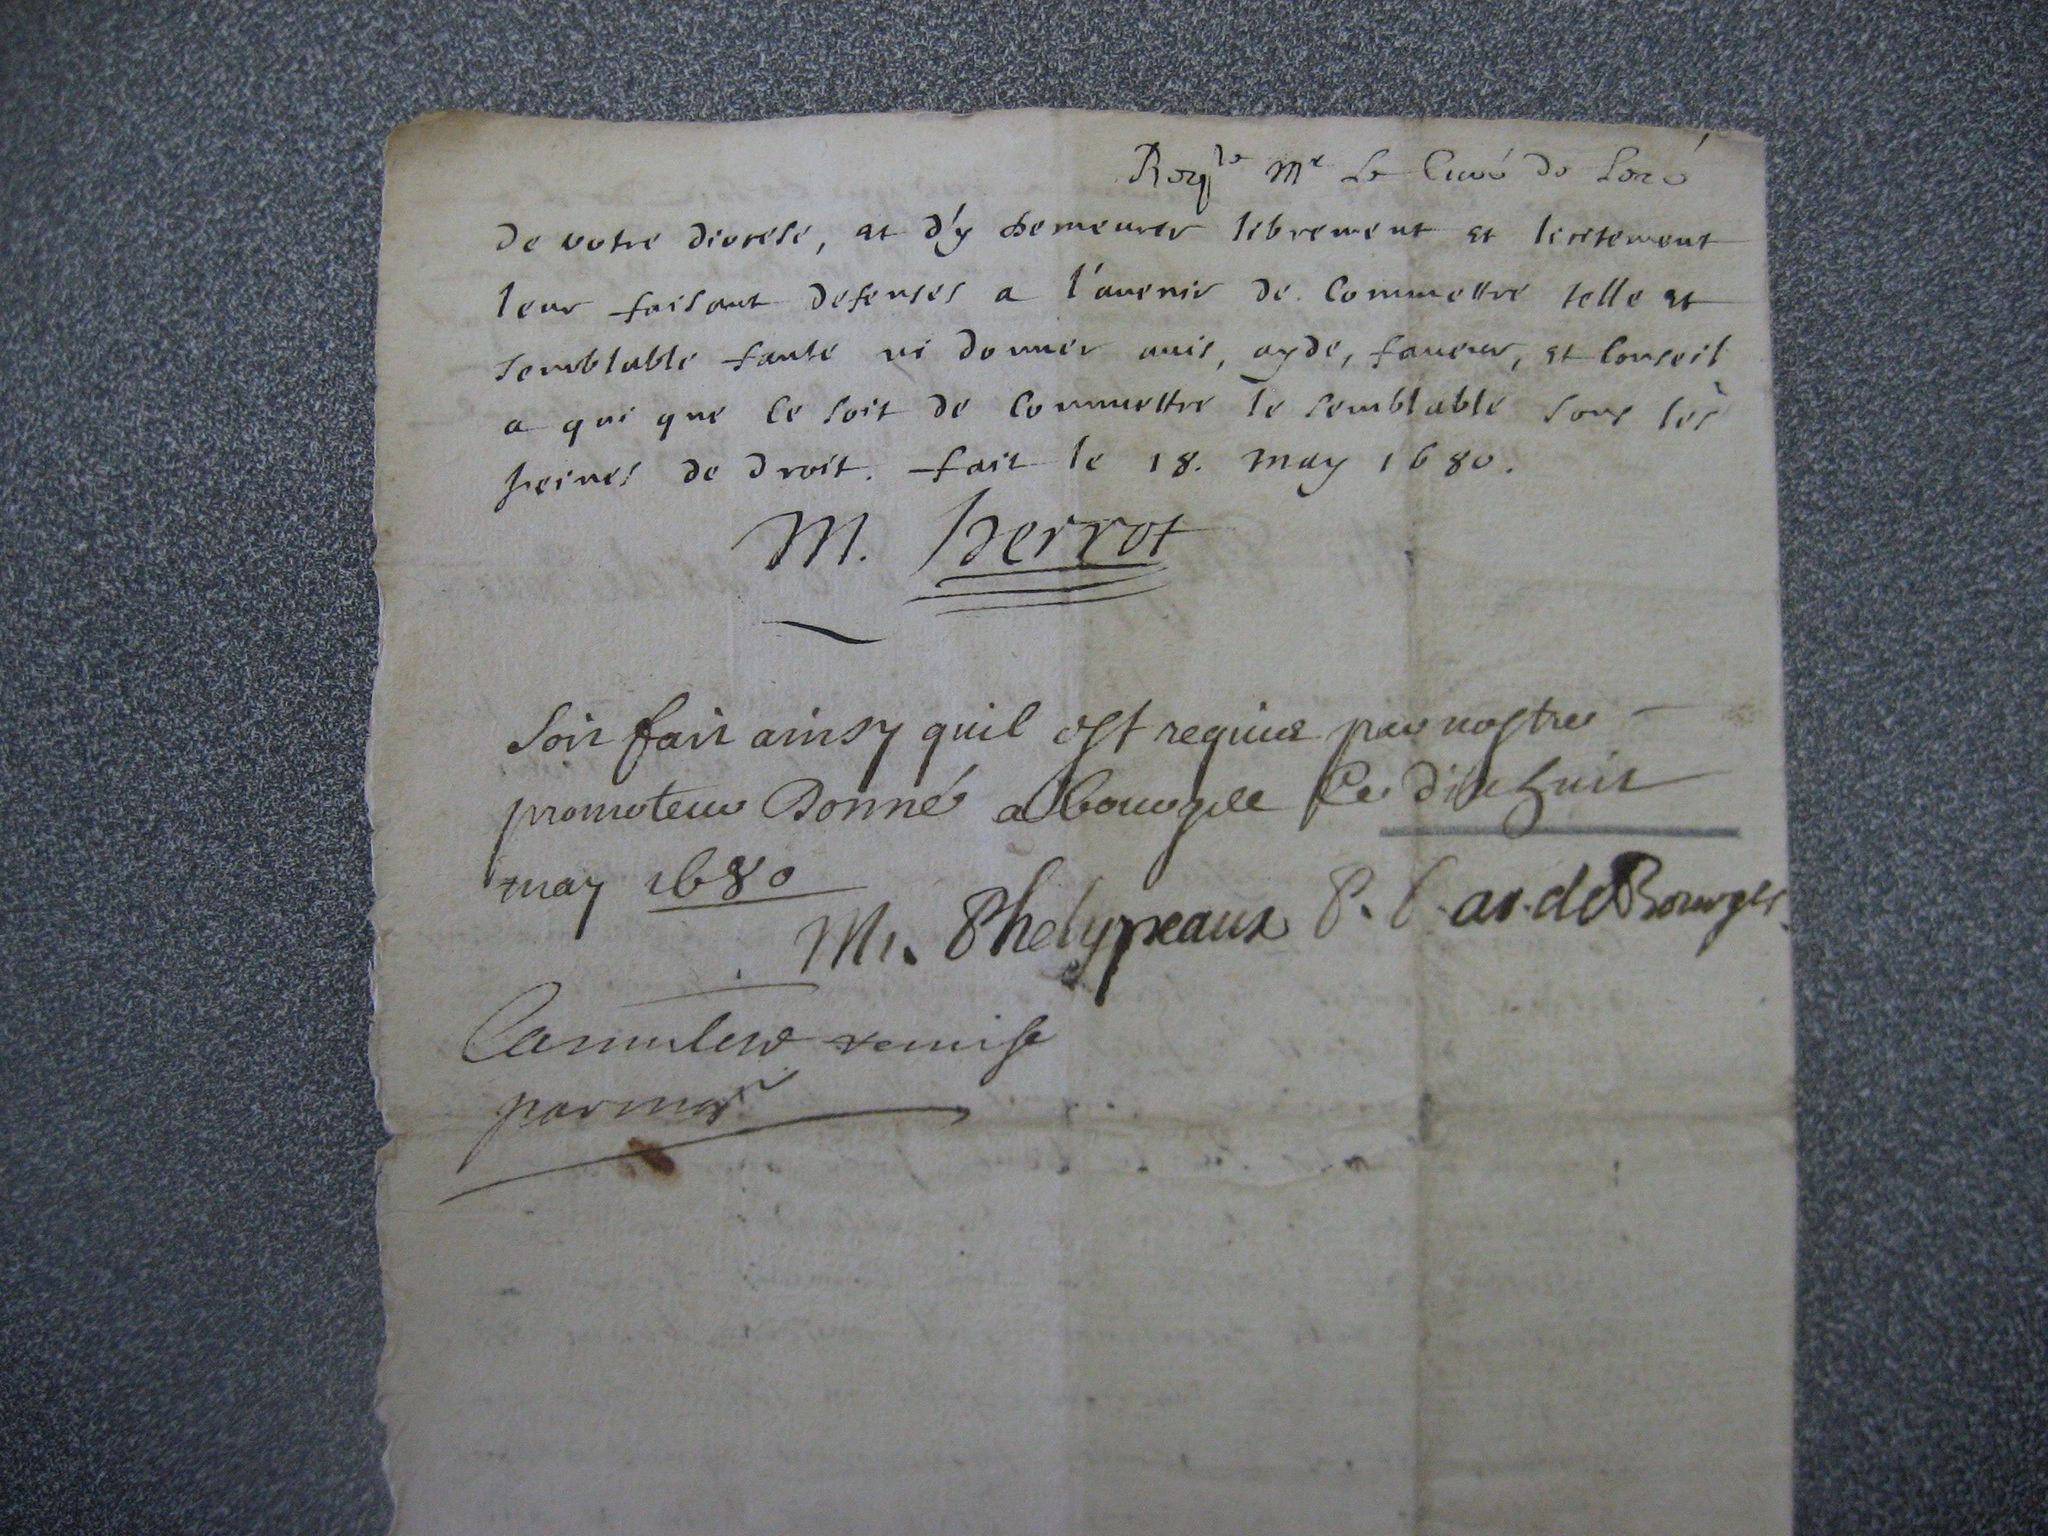 Reqte Mr Le Curé de Loré
de votre diocese, et d'y demeurer librement et licitement
leur faisant defenses a l'avenir de commettre telle et
semblable faute ni donner avis, ayde, faveur, et conseil
a qui que ce soit de commettre le semblable sous lès
peines de droit. fait le 18. may 1680.
M. Perrot
Soit fait ainsy quil est requis par nostre
promoteur Donné a bourges ce dix huit
may 1680
Mi. Phelypeaux P. P. ar. de Bourges
remise
par